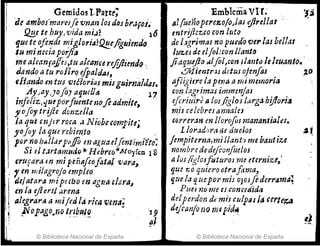 Gemidos I. Parte;
de ambos mares se vnan los dos braços.
Que te buy, vida mia? 16
que te ofendi mi gloria? Que siguiendo
tu mi necia porfia
me alcançasses, tu alcance resistiendo
dando a tu rostro espaldas,
estando en tus vestorios mis guirnaldas.
Ay, ay, yo soy aquella 17
infeliz, que por fuente no se admite,
yo soy triste donzella
la que en ser roca a Niobe compite;
yo soy la que rebiento
por no hallar passo en agua el sentimiẽto.
Si el tartamudo * Hebreo *Moyses 18
erupara en mi peñasco fatal vara,
y en milagroso empleo
desatara mi pecho en agua clara,
en la esteril arena
alegrara a mi sed la rica vena;
No pago, no tributo 19
al
Emblema VII. 32
al sueño perezoso, las estrellas
entristezco con luto
de lagrimas no puedo ver las bellas
luzes del sol: con llanto
si aquesto al sol, con llanto le leuanto.
Mientras destas ofensas 20
afligiere la pena a mi memoria
con lagrimas immensas
escriuirè a los siglos larga historia
mis celebres annales
correran en llorosos manantiales.
Lloradora de duelos 21
sempiterna, mi llanto me bautize
nombre de desconsuelos
a los siglos futuros me eternize,
que no quiero otra fama,
que la que por mis ojos se derrama;
Pues no me es concedida
del perdon de mis culpas la certeza
descanso no me pida
el
© Biblioteca Nacional de España
© Biblioteca Nacional de España